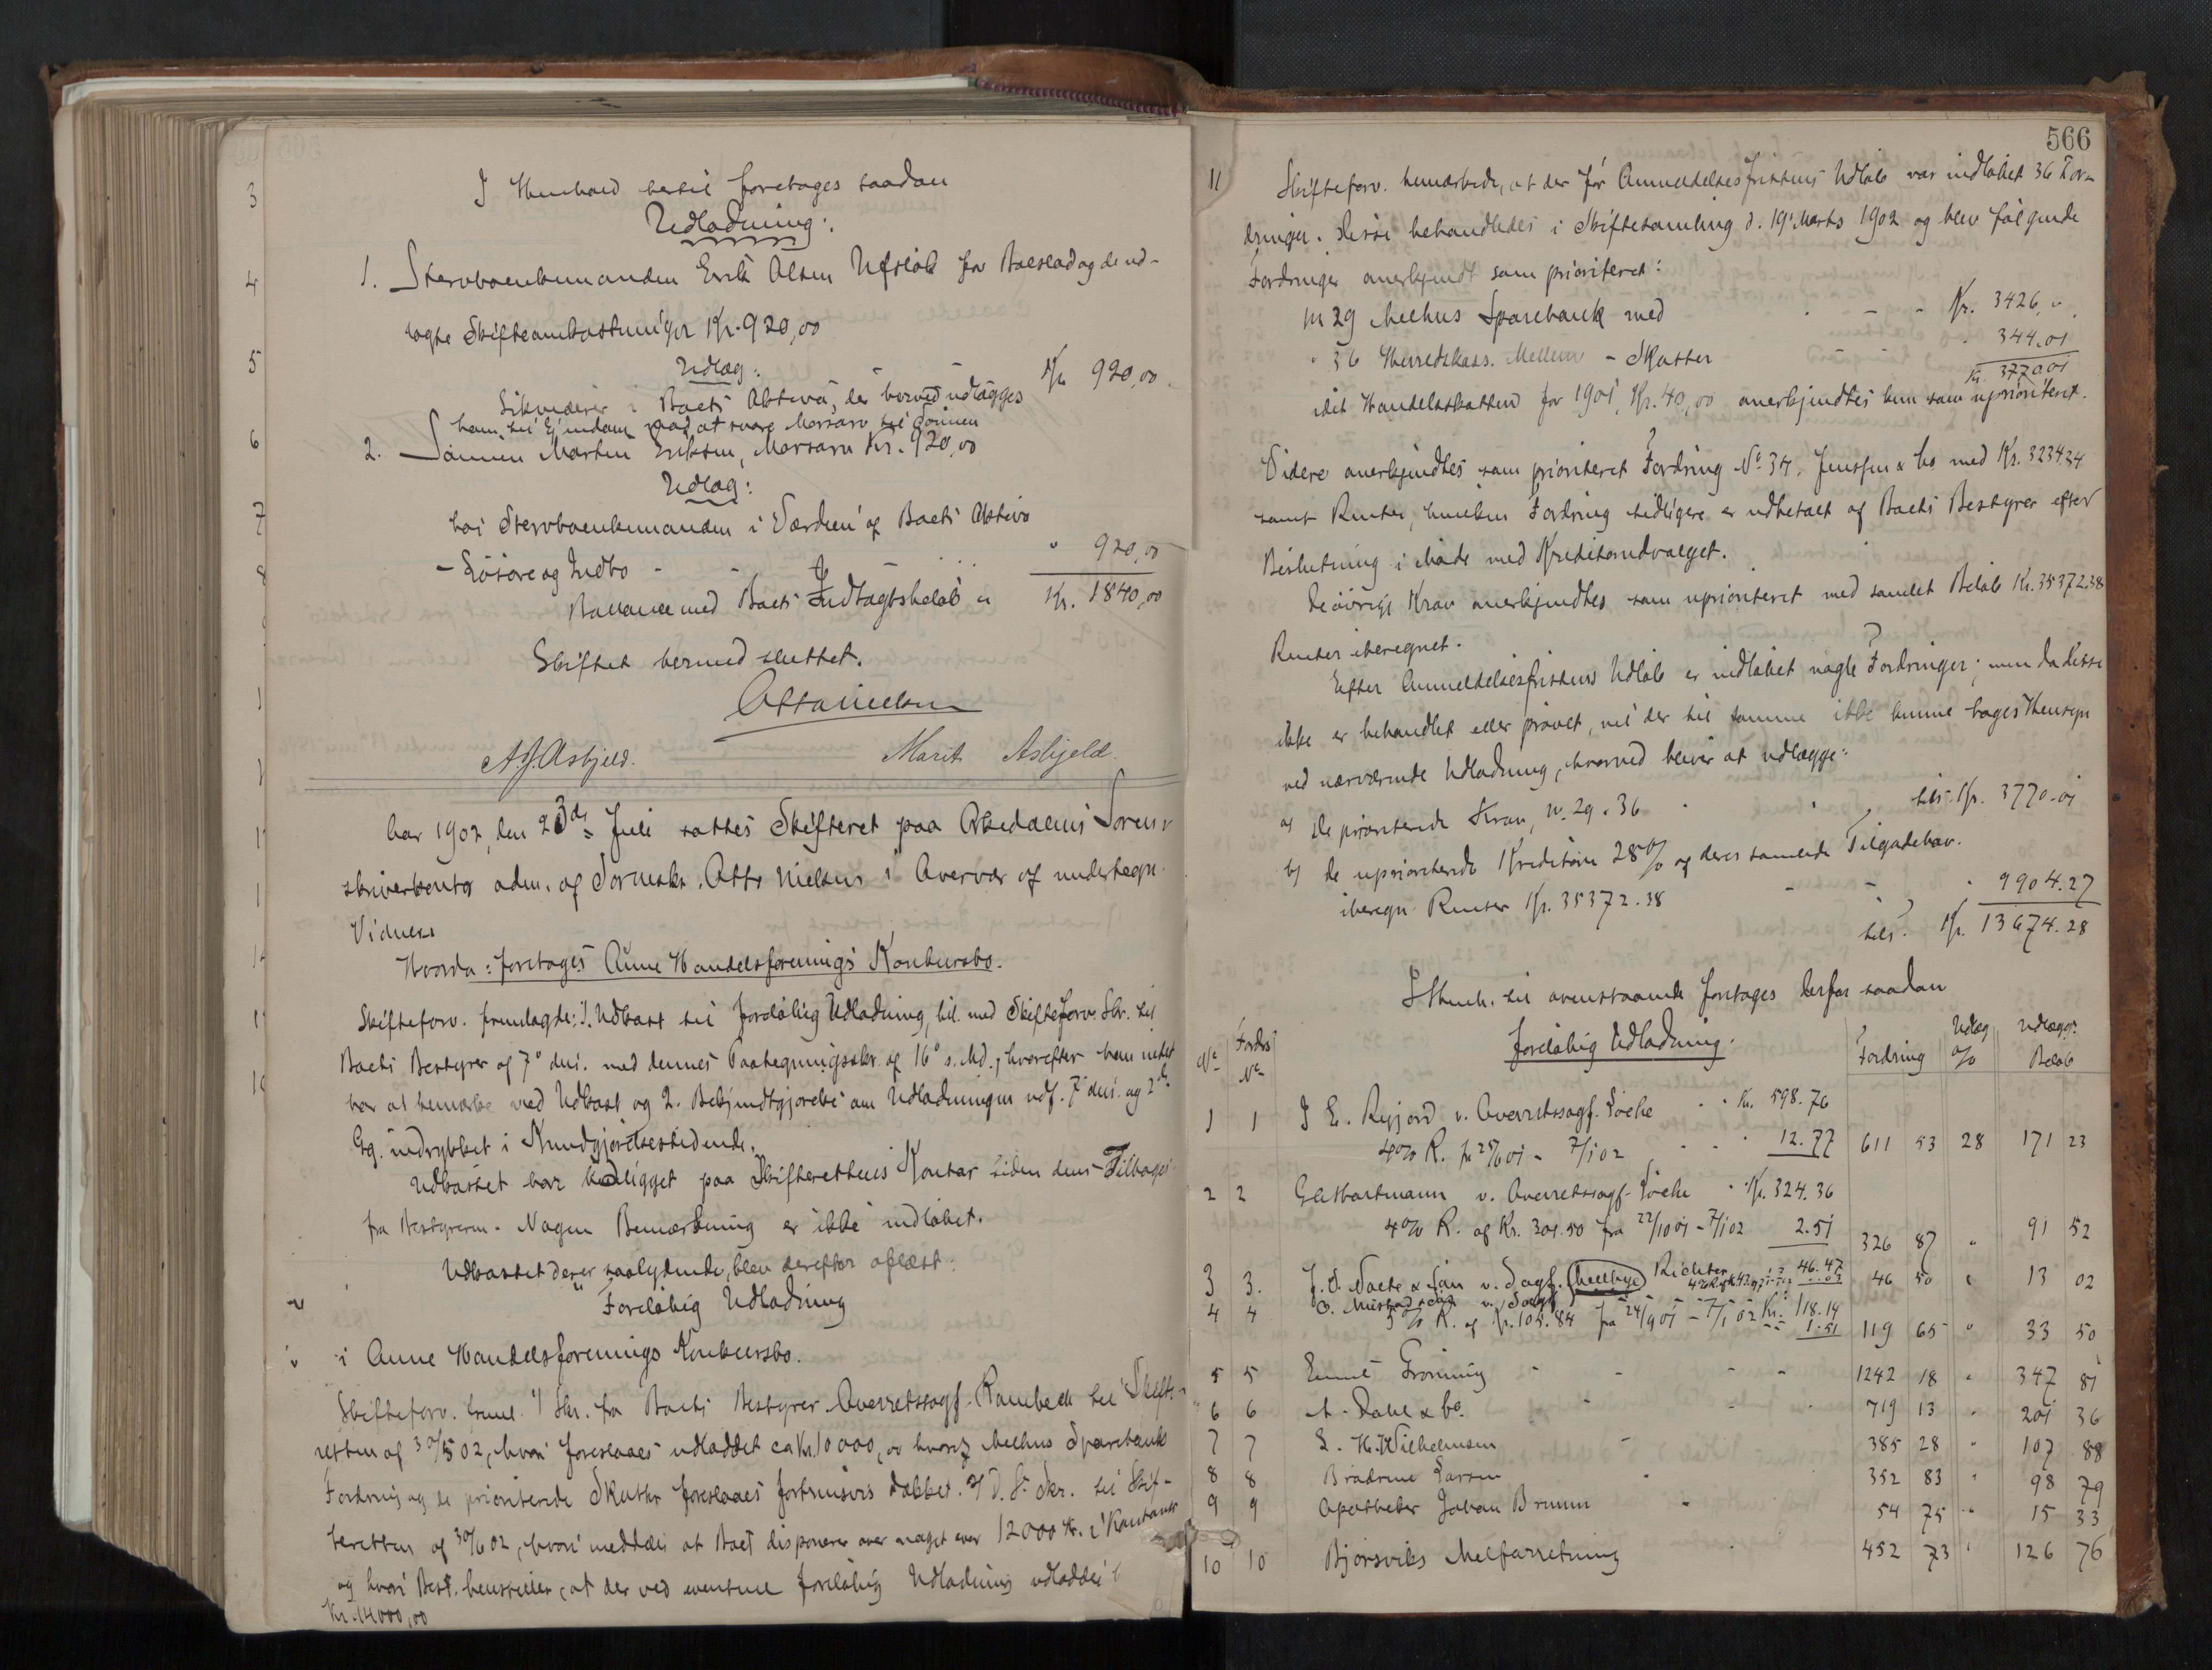 I Henhold hertil foretages saadan
Udlodning:
1. Stervboenkemanden Erik Olsen Ufsløb for Boeslod og de ud-
lagte Skifteomkostninger Kr. 920,00
Udlæg:
Likviderer i Boets Aktiva, der herved udlægges Kr. 920,00
ham til Eiendom mod at svare Morsarv til Sønnen
2. Sønnen Morten Eriksen, Morsarv Kr. 920,00
Udlæg:
hos Stervboenkemanden i Værdien af Boets Aktiva
- Løsøre og Indbo - - " 920,00
Ballance med Boets Indtægtsbeløb Kr. 1840,00
Skiftet hermed sluttet.
Otto Nielsen
A. J. Asbjeld. Marit Asbjeld.
Aar 1902, den 23de Juli sattes Skifteret paa Orkedalens Soren-
skriverkontor adm. af Sorenskr. Otto Nielsen i Overvær af undertegn.
Vidner
Hvorda: foretoges Aune Handelsforenings Konkursbo.
Skifteforv. fremlagde: 1. Udkast til foreløbig Udlodning, bil. med Skifteforv. Skr. til
Boets Bestyrer af 7de ds. med dennes Paategningsskr. af 16de s. Md., hvorefter han intet
har at bemærke ved Udkast og 2. Bekjendtgjørelse om Udlodningen udf. 7de ds. og 2de
Gg. indrykket i Kundgjørelsestidende.
Udkastet har henligget paa Skifterettens Kontor siden dens Tilbagek.
fra Bestyreren. Nogen Bemærkning er ikke indløbet.
Udkastet der er saalydende, blev derefter oplæst:
" Foreløbig Udlodning
i Aune Handelsforenings Konkursbo.
Skifteforv. freml. 1) Skr. fra Boets Bestyrer Overretssagf. Rambech til Skifte-
retten af 30/5 02, hvori foreslaaes udloddet ca Kr. 10000,00 hvorved Melhus Sparebanks
Fordring og de prioriterede Skatter foreslaaes fortrinsvis dækket. 2) D. S. Skr. til Skif-
teretten af 30/6 02, hvori meddeles at Boet disponerer over noget over 12000 Kr. i Kontant
og hvori Best. henstiller, at der ved eventuel foreløbig Udlodning udloddes
Kr. 14000,00
566
11 Skifteforv. bemærkede, at der før Anmeldelsesfristens Udløb var indløbet 36 For-
dringer. Disse behandledes i Skiftesamling d. 19de Marts 1902 og blev følgende
Fordringer anerkjendt som prioriteret:
No 29 Melhus Sparebank med - - - Kr. 3426,"
" 36 Herredskass. Mellem - Skatter " 344.01
Kr. 3770.01
idet Handelsskatten for 1901, Kr. 40,00 anerkjendtes kun som uprioriteret.
Videre anerkjendtes som prioriteret Fordring No 34. Jenssen & Co med Kr. 3234.34
samt Renter, hvilken Fordring tidligere er udbetalt af Boets Bestyrer efter
Beslutning i Møde med Kreditorudvalget.
De øvrige Krav anerkjendtes som uprioriteret med samlet Beløb Kr. 35372.38
Renter iberegnet.
Efter Anmeldelsesfristens Udløb er indløbet nogle Fordringer; men da disse
ikke er behandlet eller prøvet, vil der til samme ikke kunne tages Hensyn
ved nærværende Udlodning, hvorved bliver at udlægge:
a) De prioriterede Krav, No. 29. 36 " " tils. Kr. 3770.01
b) de uprioriterede Kreditorer 28% af deres samlede Tilgodehav.
iberegn. Renter Kr. 35372.38 - - " 9904.27
tils. Kr. 13674.28
I Henh. til ovenstaaende foretages derfor saadan
foreløbig Udlodning.
No Fordrs No Fordring Udlæg % Udlægges Beløb
1 1 J. E. Rejjord v. Overretssagf. Roche " " Kr. 598.76
4% R. fra 25/6 01 - 7/1 02 " " 12.77 611 53 28 171 23
2 2 G. Hartmann v. Overretssagf. Roche " Kr. 324.36
4% R. af Kr. 301.50 fra 22/10 01 - 7/1 02 2.51 326 87 " 91 52
3 3. & Søn v. Sagf. Mellbye Richter 46.47 46 50 " 13 02
4 4 O. Mustad & Søn v. Sagf.
5% R. af Kr. 105.84 fra 24/9 01 - 7/1 02 Kr. 118.14 1.51 119 65 " 33 50
5 5 Emil Grønning - - - - 1242 18 " 347 81
6 6 A. Dahl & Co. - - " 719 13 " 201 36
7 7 L. H. Wilhelmsen - 385 28 " 107 88
8 8 Brødrene Larsen " 352 83 " 98 79
9 9 Apotheker Johan Bruun - 54 75 " 15 33
10 10 Bjørsviks Melforretning " 452 73 " 126 76